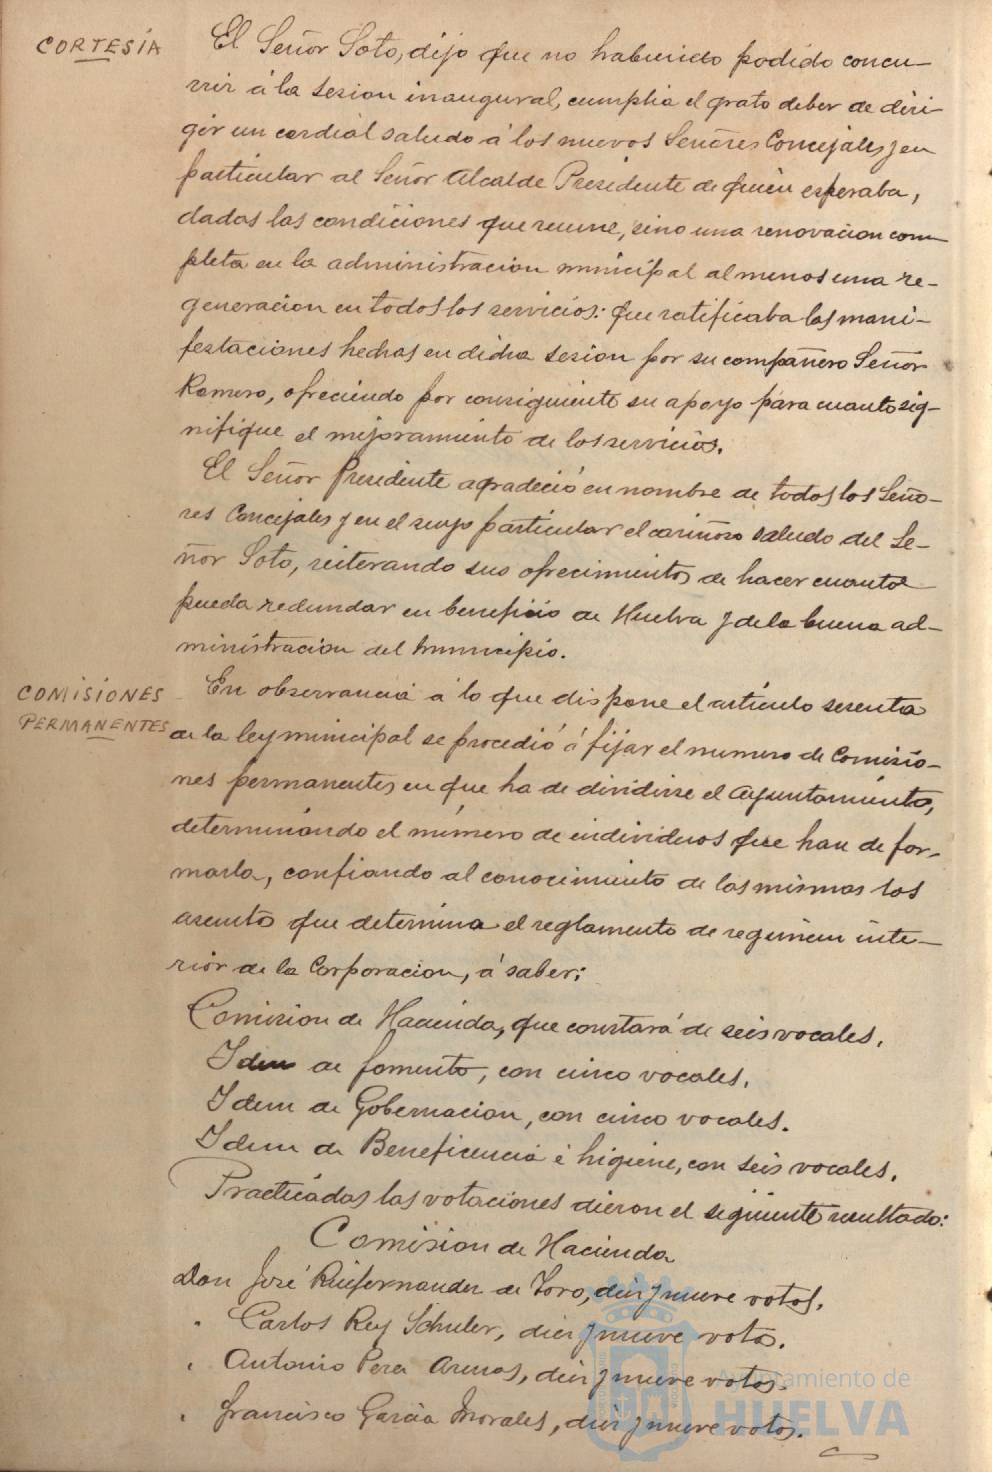 CORTESÍA
El Señor Soto, dijo que no habiendo podido concu-
rrir á la sesion inaugural, cumplia el grato deber de diri-
gir un cordial saludo á los nuevos Señores Concejales y en
particular al Señor Alcalde Presidente de quien esperaba,
dadas las condiciones que reune, sino una renovacion com-
pleta en la administracion municipal al menos una re-
generacion en todos los servicios: que ratificaba las mani-
festaciones hechas en dicha sesion por su compañero Señor
Romero, ofreciendo por consiguiente su apoyo para cuanto sig-
nifique el mejoramiento de los servicios.
El Señor Presidente agradeció en nombre de todos los Seño-
res Concejales y en el suyo particular el cariñoso saludo del Se-
ñor Soto, reiterando sus ofrecimientos de hacer cuanto
pueda redundar en beneficio de Huelva y de la buena ad-
ministracion del municipio.
COMISIONES
PERMANENTES
En observancia á lo que dispone el artículo sesenta
de la ley municipal se procedió á fijar el numero de Comisio-
nes permanentes en que ha de dividirse el Ayuntamiento,
determinando el número de individuos que han de for-
marla, confiando al conocimiento de las mismas los
asuntos que determina el reglamento de regimen inte-
rior de la Corporacion, á saber:
Comision de Hacienda, que constará de seis vocales.
Idem de fomento, con cinco vocales.
Idem de Gobernacion, con cinco vocales.
Idem de Beneficencia é higiene, con seis vocales.
Practicadas las votaciones dieron el siguiente resultado:
Comision de Hacienda
Don José Ruifernandez de Toro, diez y nueve votos.
" Carlos Rey Schuler, diez y nueve votos.
" Antonio Pera Armas, diez y nueve votos.
" Francisco Garcia Morales, diez y nueve votos.
Ayuntamiento de
HUELVA